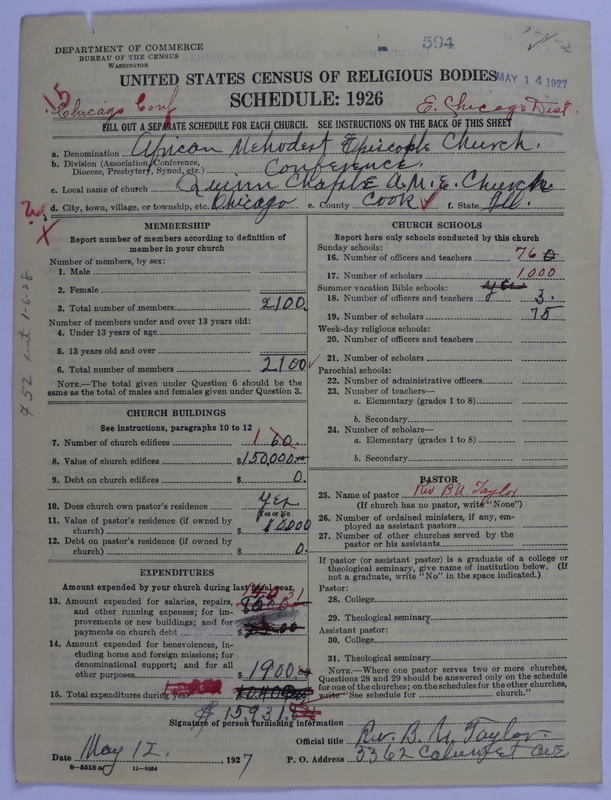 594
DEPARTMENT OF COMMERCE
BUREAU OF THE CENSUS
WASHINGTON
UNITED STATES CENSUS OF RELIGIOUS BODIES
MAY 14 1927
SCHEDULE: 1926
15
Chicago Conf
E. Chicago Dist.
FILL OUT A SEPARATE SCHEDULE FOR EACH CHURCH. SEE INSTRUCTIONS ON THE BACK OF THIS SHEET
a. Denomination African Methodist Episcople Church.
b. Division (Association, Conference, Diocese, Presbytery, Synod, etc.) Conference.
c. Local name of church Quinn Chaple A.M.E. Church
d. City, town, village, or township, etc. Chicago e. County Cook f. State Ill.
X
752 ent 1-6-28
MEMBERSHIP
Report number of members according to definition of
member in your church
Number of members, by sex:
1. Male
2. Female
3. Total number of members 2100.
Number of members under and over 13 years old:
4. Under 13 years of age
5. 13 years old and over
6. Total number of members 2100
NOTE.—The total given under Question 6 should be the
same as the total of males and females given under Question 3.
CHURCH BUILDINGS
See instructions, paragraphs 10 to 12
7. Number of church edifices 1 60.
8. Value of church edifices $150,000.00
9. Debt on church edifices $ 0.
10. Does church own pastor's residence Yes
Yes or No
11. Value of pastor's residence (if owned by
church) $ 10000
12. Debt on pastor's residence (if owned by
church) $ 0.
EXPENDITURES
Amount expended by your church during last fiscal year
13. Amount expended for salaries, repairs,
and other running expenses; for im-
provements or new buildings; and for
payments on church debt $
14. Amount expended for benevolences, in-
cluding home and foreign missions; for
denominational support; and for all
other purposes $1900.
15. Total expenditures during year
$ 15,931.
CHURCH SCHOOLS
Report here only schools conducted by this church
Sunday schools:
16. Number of officers and teachers 76 0
17. Number of scholars 1000
Summer vacation Bible schools: yes
18. Number of officers and teachers 3.
19. Number of scholars 75
Week-day religious schools:
20. Number of officers and teachers
21. Number of scholars
Parochial schools:
22. Number of administrative officers
23. Number of teachers—
a. Elementary (grades 1 to 8)
b. Secondary
24. Number of scholars—
a. Elementary (grades 1 to 8)
b. Secondary
PASTOR
25. Name of pastor Rev B U Taylor
(If church has no pastor, write "None")
26. Number of ordained ministers, if any, em-
ployed as assistant pastors
27. Number of other churches served by the
pastor or his assistants
If pastor (or assistant pastor) is a graduate of a college or
theological seminary, give name of institution below. (If
not a graduate, write "No" in the space indicated.)
Pastor:
28. College
29. Theological seminary
Assistant pastor:
30. College
31. Theological seminary
NOTE.—Where one pastor serves two or more churches,
Questions 28 and 29 should be answered only on the schedule
for one of the churches; on the schedules for the other churches,
write "See schedule for church."
Signature of person furnishing information
Official title Rev. B. U Taylor
Date May 12, 1927 P. O. Address 3362 Calumet Ave.
8-5518 a 11-9064